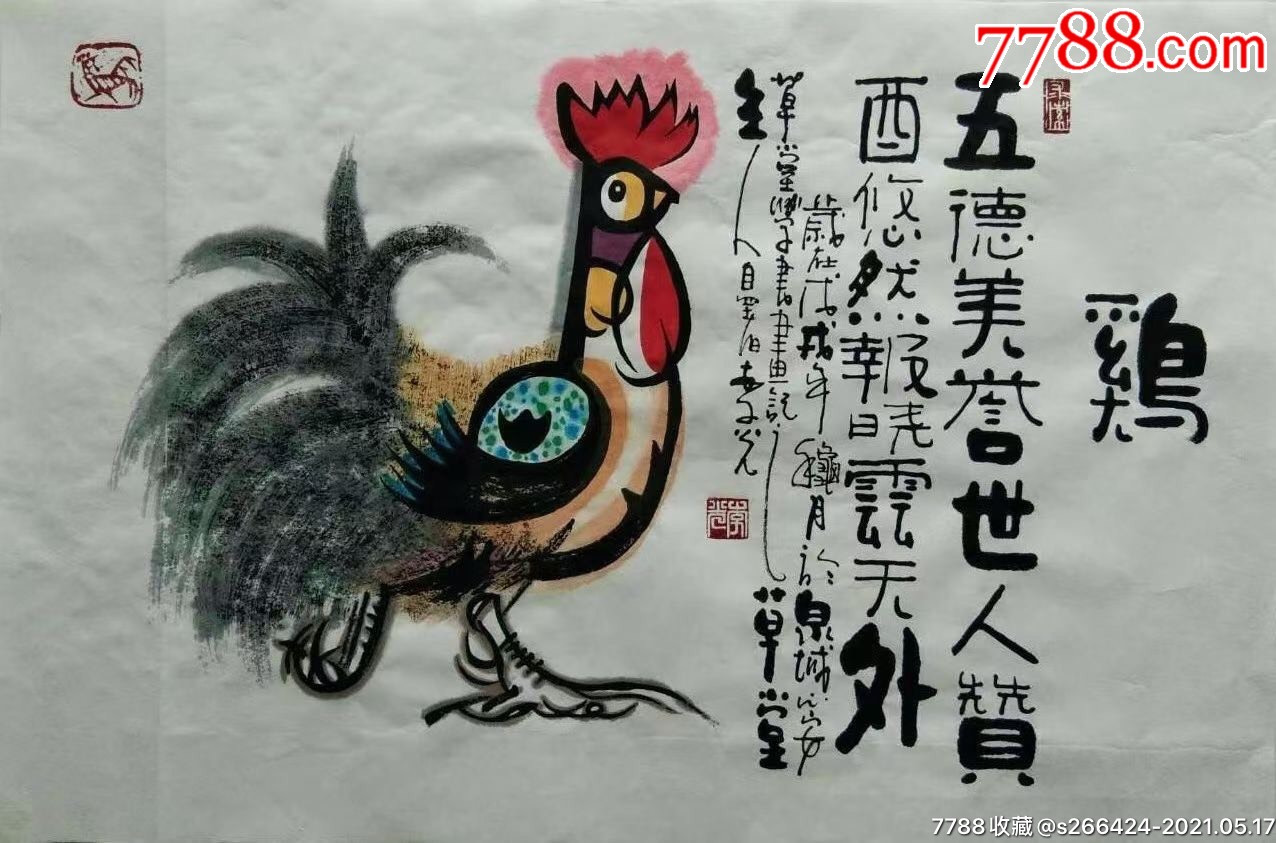 7788.com
鷄
五德美誉世人贊
酉悠然報曉雲天外
歲在戊戌年龝月於泉城
草堂學子書畫記
草堂
主人
7788收藏@s266424-2021.05.17